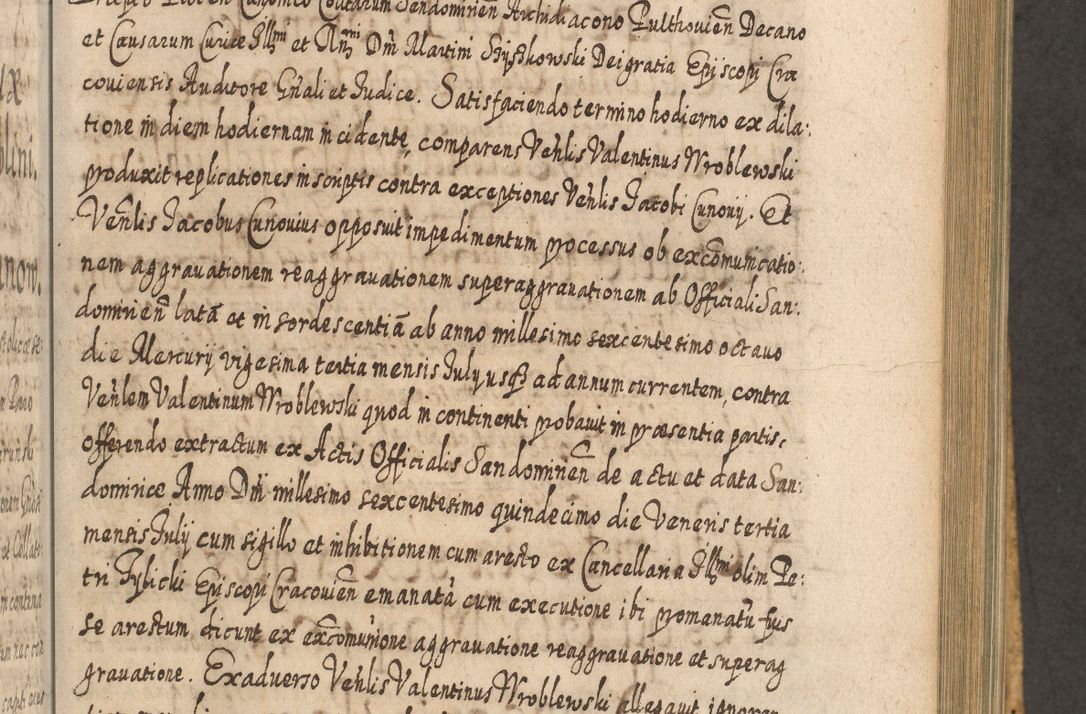 Canonico Sendomirien Archidiacono Pulthovien Decano
et Causarum Curiæ Illmi et Rmi Dni Martini Szyszkowski Dei gratia Episcopi Cra
coviensis Auditore Gnali et Judice. Satisfaciendo termino hodierno ex dila:
tione in diem hodiernam incidente, comparens Venlis Valentinus Wroblewski
produxit replicationes in scriptis contra exceptiones Venlis Jacobi Cunovij. Et
Venlis Jacobus Cunovius opposuit impedimentum processus ob excomunicatio:
nem aggravationem reaggravationem superaggravationem ab Officiali San:
domirien latã et insordescentiã ab anno millesimo sexcentesimo octavo
die Mercurij vigesima tertia mensis July usq3 ad annum currentem, contra
Venlem Valentinum Wroblewski quod in continenti probavit in præsentia partis,
offerendo extractum ex Actis Officialis Sandomirien de actu et data San:
domiriæ Anno Dni millesimo sexcentesimo quindecimo die Veneris tertia
mensis Julij cum sigillo et inhibitionem cum aresto ex Cancellaria Illmi olim Pe:
tri Tylicki Episcopi Cracovien emanatã cum executione ibi pomanatũ fuis
se arestum dicunt ex excomunione aggravatione reaggravatione et superag
gravatione. Ex adverso Venlis Valentinus Wroblewski allegavit ignoran